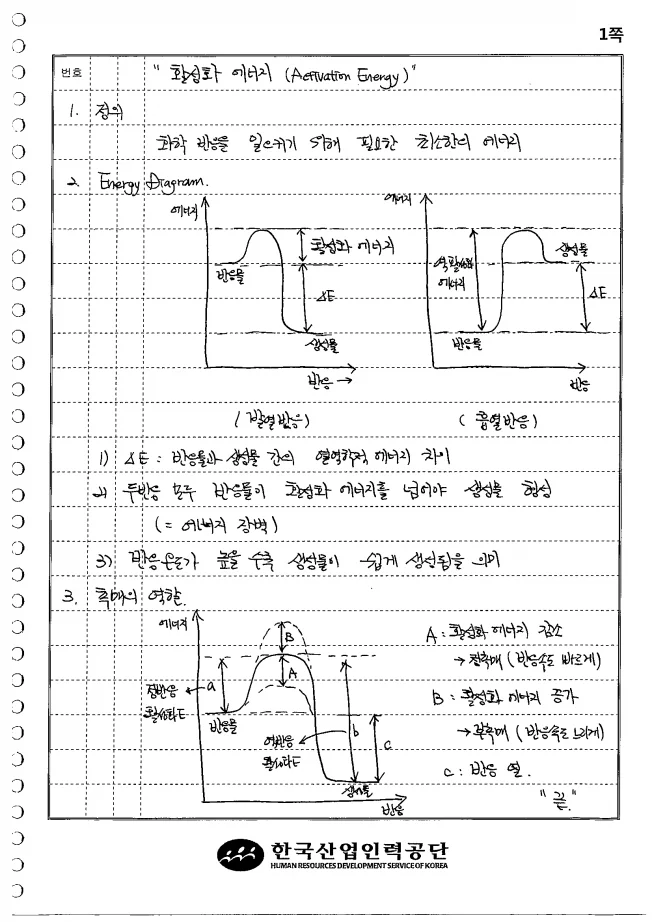 1쪽
번호
" 활성화 에너지 (Activation Energy) "
1. 정의
화학 반응을 일으키기 위해 필요한 최소한의 에너지
2. Energy Diagram.
에너지
활성화 에너지
반응물
ΔE
생성물
반응 →
(발열반응)
에너지
생성물
에너지
ΔE
반응물
반응
(흡열반응)
1) ΔE : 반응물과 생성물 간의 열역학적 에너지 차이
2) 두반응 모두 반응물이 활성화 에너지를 넘어야 생성물 형성
(= 에너지 장벽)
3) 반응온도가 높을 수록 생성물이 쉽게 생성됨을 의미
3. 촉매의 역할.
에너지
B
A
정반응
활성화E
a
반응물
역반응
활성화E
b
c
생성물
반응
A : 활성화 에너지 감소
→ 정촉매 (반응속도 빠르게)
B : 활성화 에너지 증가
→ 부촉매 (반응속도 느리게)
c : 반응 열.
" 끝. "
한국산업인력공단
HUMAN RESOURCES DEVELOPMENT SERVICE OF KOREA